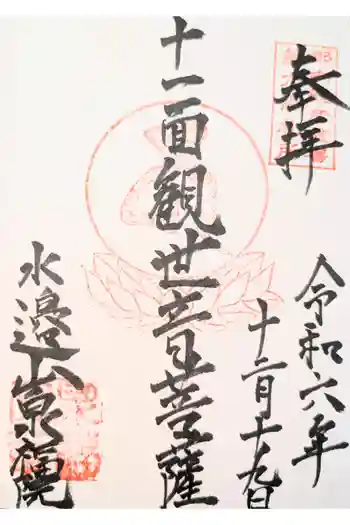 奉拝
令和六年
十二月十九日
十一面観世音菩薩
水邉山泉福院